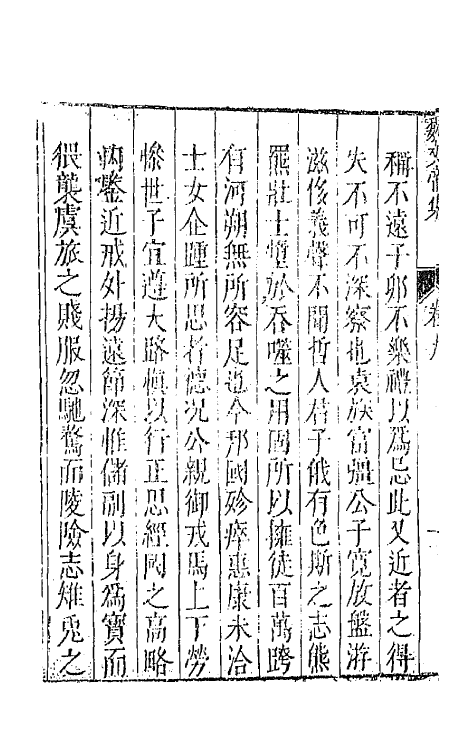 魏文帝集　卷九
稱不遠子卯不樂禮以爲忌此又近者之得
失不可不深察也袁族富彊公子寬放盤游
滋侈義聲不聞哲人君子俄有色斯之志熊
羆壯士墮於吞噬之用固所以擁徒百萬跨
有河朔無所容足也今邦國殄瘁惠康未洽
士女企踵所思者德況公親御戎馬上下勞
慘世子宜遵大路愼以行正思經國之高略
內鑒近戒外揚遠節深惟儲副以身爲寶而
猥襲虞旅之賤服忽馳騖而陵險志雉兎之